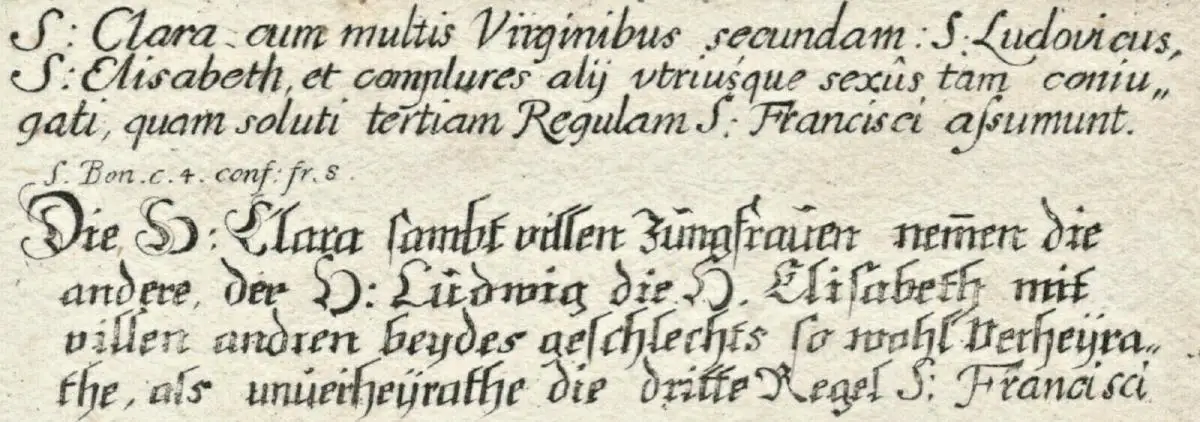 S: Clara cum multis Virginibus secundam: S: Ludovicus,
S: Elisabeth, et complures alij vtriusque sexûs tam coniu„
gati, quam soluti tertiam Regulam S: Francisci aſsumunt.
S. Bon. c. 4. conf: fr. 8.
Die H: Clara ſambt villen Jŭngfraŭen nem̄en die
andere, der H: Lŭdwig die H. Eliſabeth mit
villen andren beydes geſchlechts ſo wohl Verheÿra„
the, als unŭerheÿrathe die dritte Regel S: Francisci